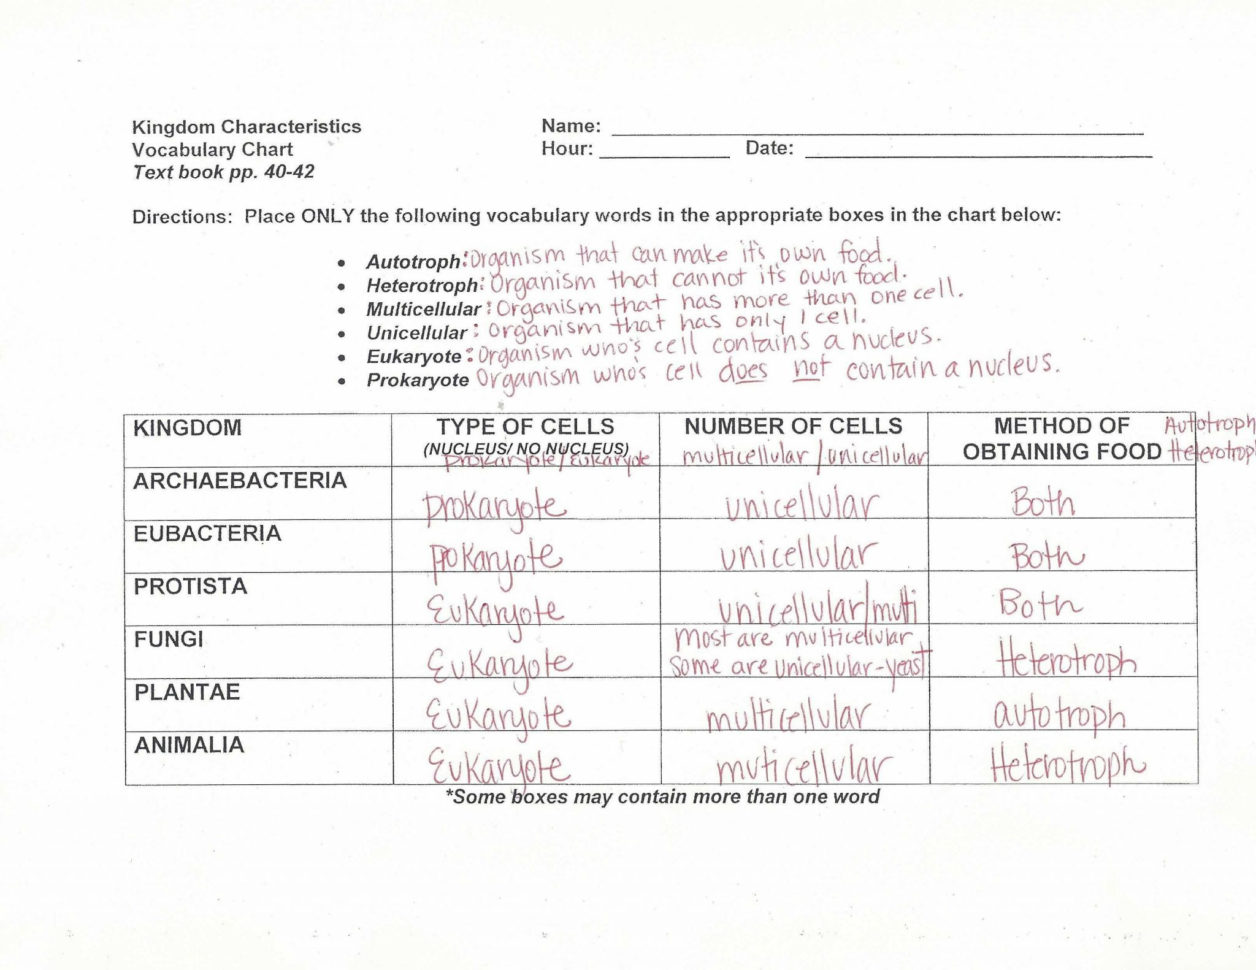 Kingdom Characteristics Name:
Vocabulary Chart Hour: Date:
Text book pp. 40-42
Directions: Place ONLY the following vocabulary words in the appropriate boxes in the chart below:
• Autotroph: Organism that can make it's own food.
• Heterotroph: Organism that cannot it's own food.
• Multicellular: Organism that has more than one cell.
• Unicellular: Organism that has only 1 cell.
• Eukaryote: Organism who's cell contains a nucleus.
• Prokaryote Organism who's cell does not contain a nucleus.
KINGDOM TYPE OF CELLS NUMBER OF CELLS METHOD OF Autotroph
(NUCLEUS/ NO NUCLEUS) OBTAINING FOOD Heterotrop
Prokaryote/Eukaryote multicellular/unicellular
ARCHAEBACTERIA Prokaryote unicellular Both
EUBACTERIA Prokaryote unicellular Both
PROTISTA Eukaryote unicellular/muti Both
FUNGI Eukaryote Most are multicellular Heterotroph
Some are unicellular-yeast
PLANTAE Eukaryote multicellular autotroph
ANIMALIA Eukaryote muticellular Heterotroph
*Some boxes may contain more than one word